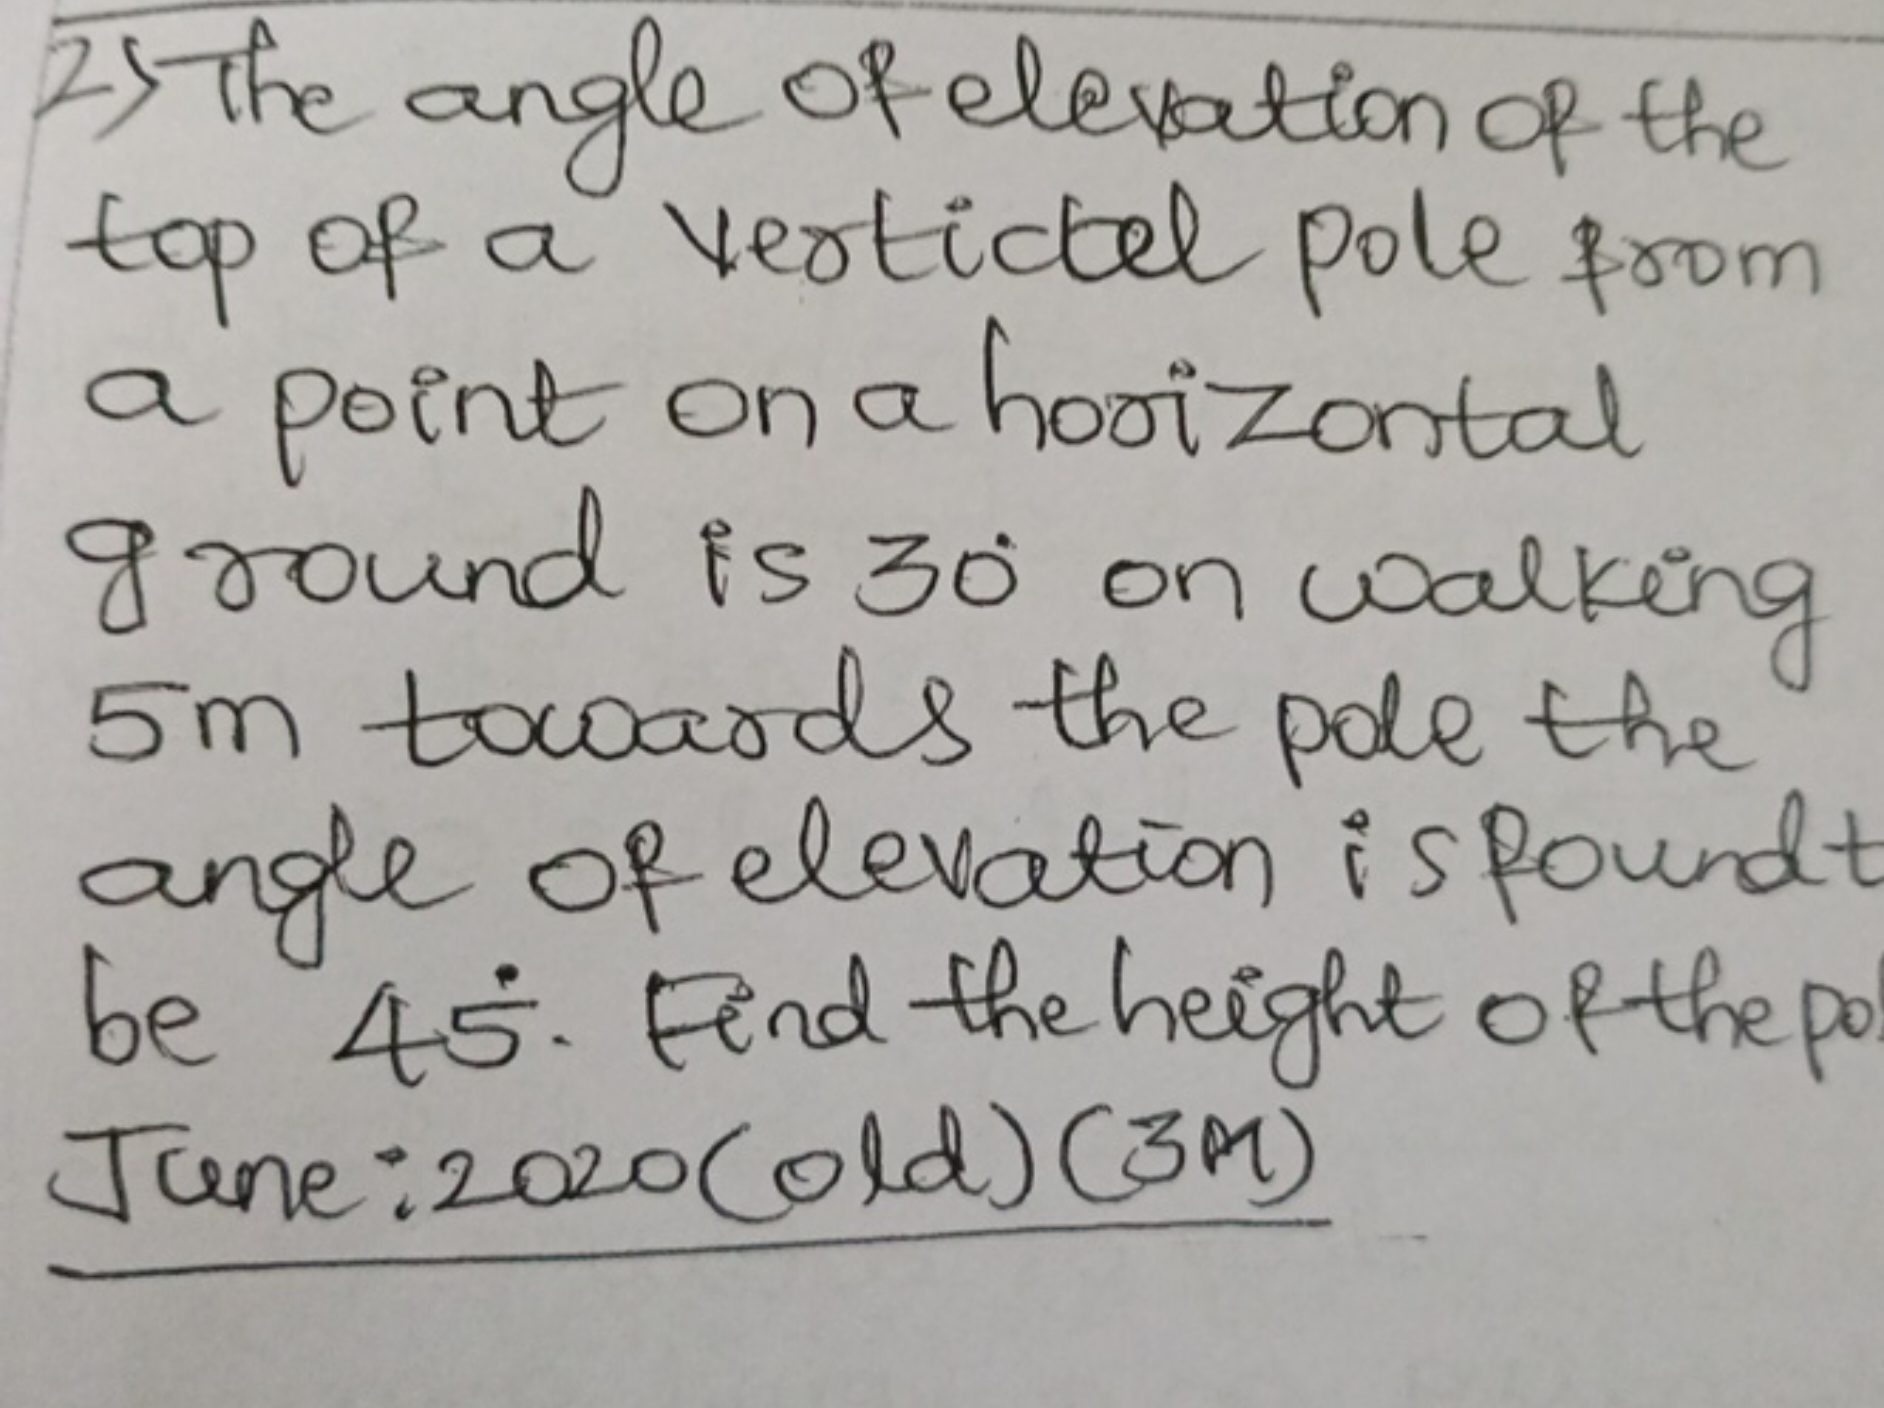 2) The angle of elevation of the
top of a vertictel pole from
a point on a horizontal
ground is 30° on walking
5m towards the pole the
angle of elevation is found t
be 45°. Find the height of the pol
June:2020(old)(3M)